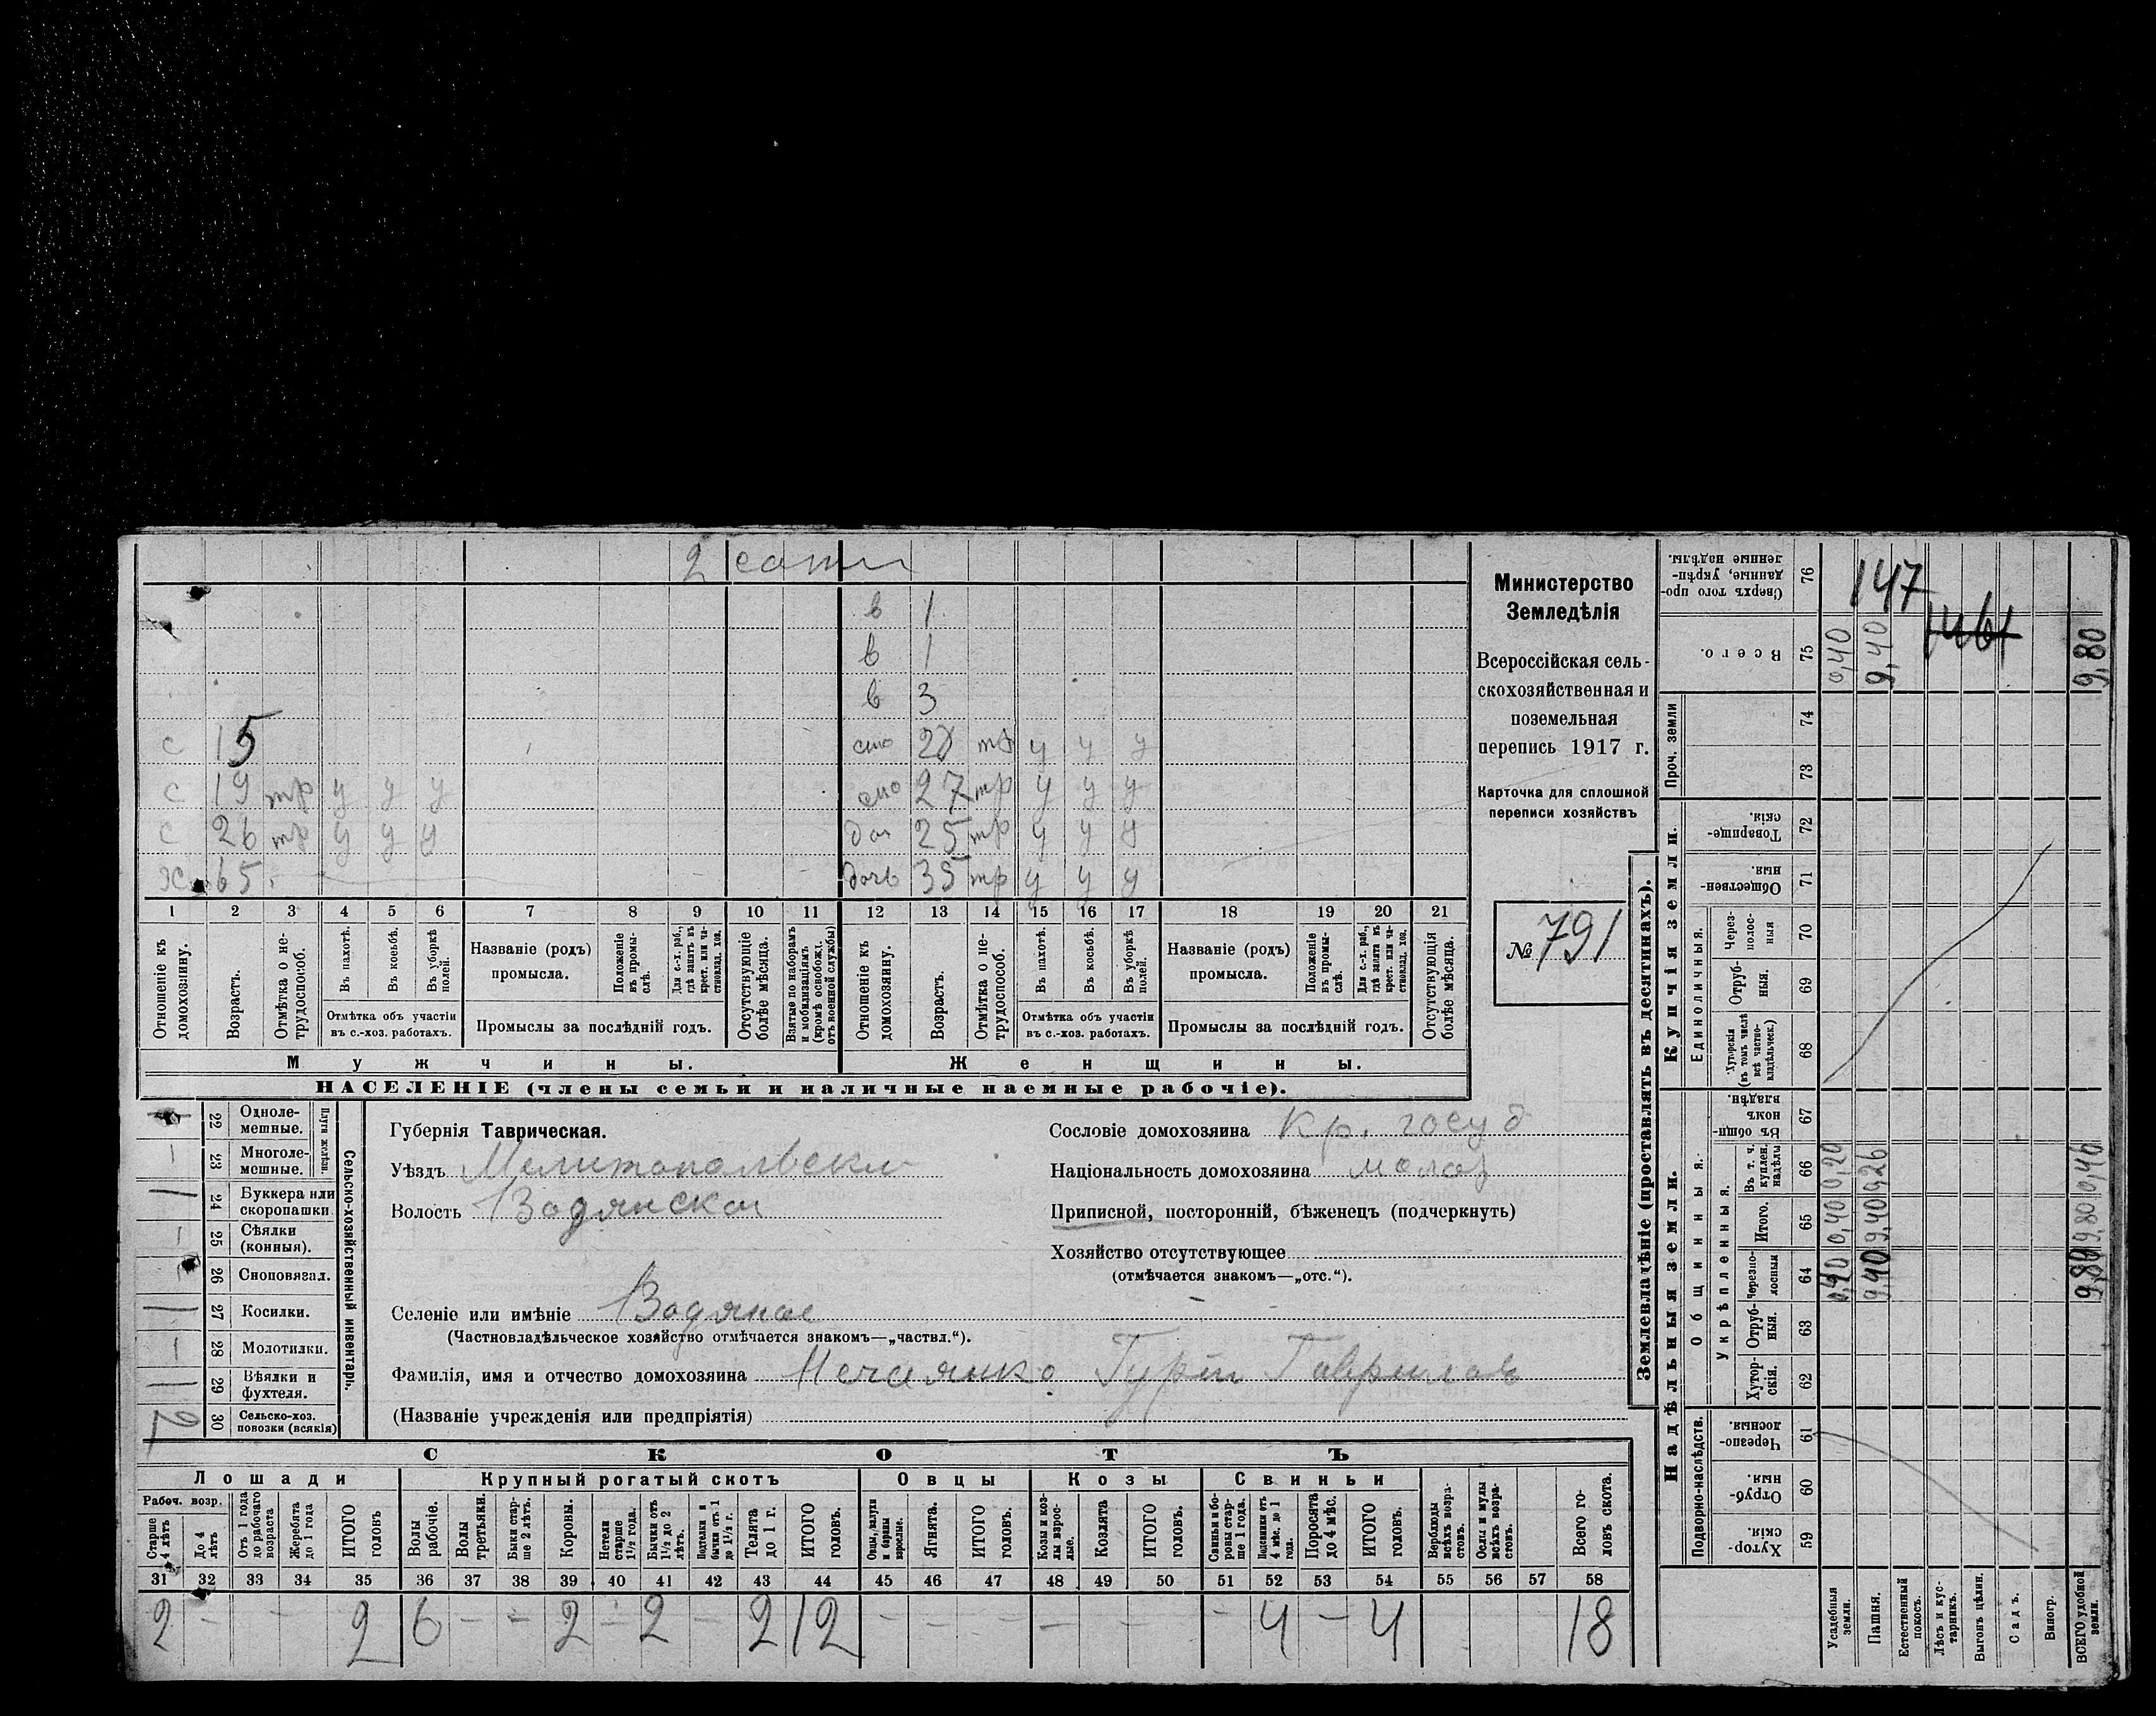 2 сотни
в 1
в 1
в 3
с 15 сно 28 тр у у у
с 19 тр у у у сно 27 тр у у у
с 26 тр у у у доч 25 тр у у у
хо 65 дочь 35 тр у у у
1 2 3 4 5 6 7 8 9 10 11 12 13 14 15 16 17 18 19 20 21
Отношеніе къ домохозяину.
Возрастъ.
Отмѣтка о не-трудоспособ.
Въ пахотѣ.
Въ косьбѣ.
Въ уборкѣ полей.
Отмѣтка объ участіи въ с.-хоз. работахъ.
Названіе (родъ) промысла.
Положеніе въ промы-слѣ.
Для с.-х. раб., гдѣ занятъ въ крест. или ча-стновлад. хоз.
Промыслы за послѣдній годъ.
Отсутствующіе болѣе мѣсяца.
Взятые по наборамъ и мобилизаціямъ (кромѣ освобожд. отъ военной службы)
Отношеніе къ домохозяину.
Возрастъ.
Отмѣтка о не-трудоспособ.
Въ пахотѣ.
Въ косьбѣ.
Въ уборкѣ полей.
Отмѣтка объ участіи въ с.-хоз. работахъ.
Названіе (родъ) промысла.
Положеніе въ промы-слѣ.
Для с.-х. раб., гдѣ занятъ въ крест. или ча-стновлад. хоз.
Промыслы за послѣдній годъ.
Отсутствующія болѣе мѣсяца.
Мужчины. Женщины.
НАСЕЛЕНІЕ (члены семьи и наличные наемные рабочіе).
Министерство
Земледѣлія
Всероссійская сель-
скохозяйственная и
поземельная
перепись 1917 г.
Карточка для сплошной
переписи хозяйствъ
№ 791
22 Одноле-мешные.
23 Многоле-мешные. 1
Плуги желѣзн.
24 Буккера или скоропашки.
25 Сѣялки (конныя). 1
26 Сноповязал.
27 Косилки.
28 Молотилки. 1
29 Вѣялки и фухтеля.
30 Сельско-хоз. повозки (всякія) 2
Сельско-хозяйственный инвентарь.
Губернія Таврическая.
Уѣздъ Мелитопольский
Волость Водянская
Селеніе или имѣніе Водяное
(Частновладѣльческое хозяйство отмѣчается знакомъ—„частвл.“).
Фамилія, имя и отчество домохозяина Нечаянко Гурій Гаврилов
(Названіе учрежденія или предпріятія)
Сословіе домохозяина Кр. госуд
Національность домохозяина малор
Приписной, посторонній, бѣженецъ (подчеркнуть)
Хозяйство отсутствующее
(отмѣчается знакомъ—„отс.“).
СКОТЪ
Лошади Крупный рогатый скотъ Овцы Козы Свиньи
Рабоч. возр.
Старше 4 лѣтъ
До 4 лѣтъ
Отъ 1 года до рабочаго возраста
Жеребята до 1 года
ИТОГО головъ
Волы рабочіе.
Волы третьяки.
Быки стар-ше 2 лѣтъ.
Коровы.
Нетели старше 1½ года.
Бычки отъ 1½ до 2 лѣтъ.
Подтелки и бычки отъ 1 до 1½ г.
Телята до 1 г.
ИТОГО головъ.
Овцы, валухи и бараны взрослые.
Ягнята.
ИТОГО головъ.
Козы и коз-лы взрос-лые.
Козлята
ИТОГО головъ.
Свиньи и бо-ровы стар-ше 1 года.
Подсвинки отъ 4 мѣс. до 1 года.
Поросята до 4 мѣс.
ИТОГО головъ.
Верблюды всѣхъ возра-стовъ.
Ослы и мулы всѣхъ возра-стовъ.
Всего го-ловъ скота.
31 32 33 34 35 36 37 38 39 40 41 42 43 44 45 46 47 48 49 50 51 52 53 54 55 56 57 58
2 - - 2 6 - - 2 - 2 - 2 12 - - - - - - 4 - 4 18
Землевладѣніе (проставлять въ десятинахъ).
Надѣльныя земли. Купчія земли. Проч. земли
Подворно-наслѣдств.
Общинныя.
Укрѣпленныя.
Единоличныя.
59 Хутор-скія.
60 Отруб-ныя.
61 Черезпо-лосныя.
62 Хутор-скія.
63 Отруб-ныя.
64 Черезпо-лосныя
65 Итого.
66 Въ т. ч. куплен. надѣлы
67 Въ общин-номъ владѣн.
68 Хуторскія (въ томъ числѣ всѣ частно-владѣльческ.)
69 Отруб-ныя.
70 Через-полос-ныя
71 Обществен-ныя.
72 Товарище-скія.
73
74
75 Всего.
76 Сверхъ того про-данные, укрѣп-ленные надѣлы.
Усадебныя земли. 0,40 0,40 0,20 0,40
Пашня. 9,40 9,40 9,26 9,40
Естественный покосъ.
Лѣсъ и кус-тарникъ.
Выгонъ цѣлин.
Садъ.
Виногр.
ВСЕГО удобной земли. 9,80 9,80 9,80
147
1461